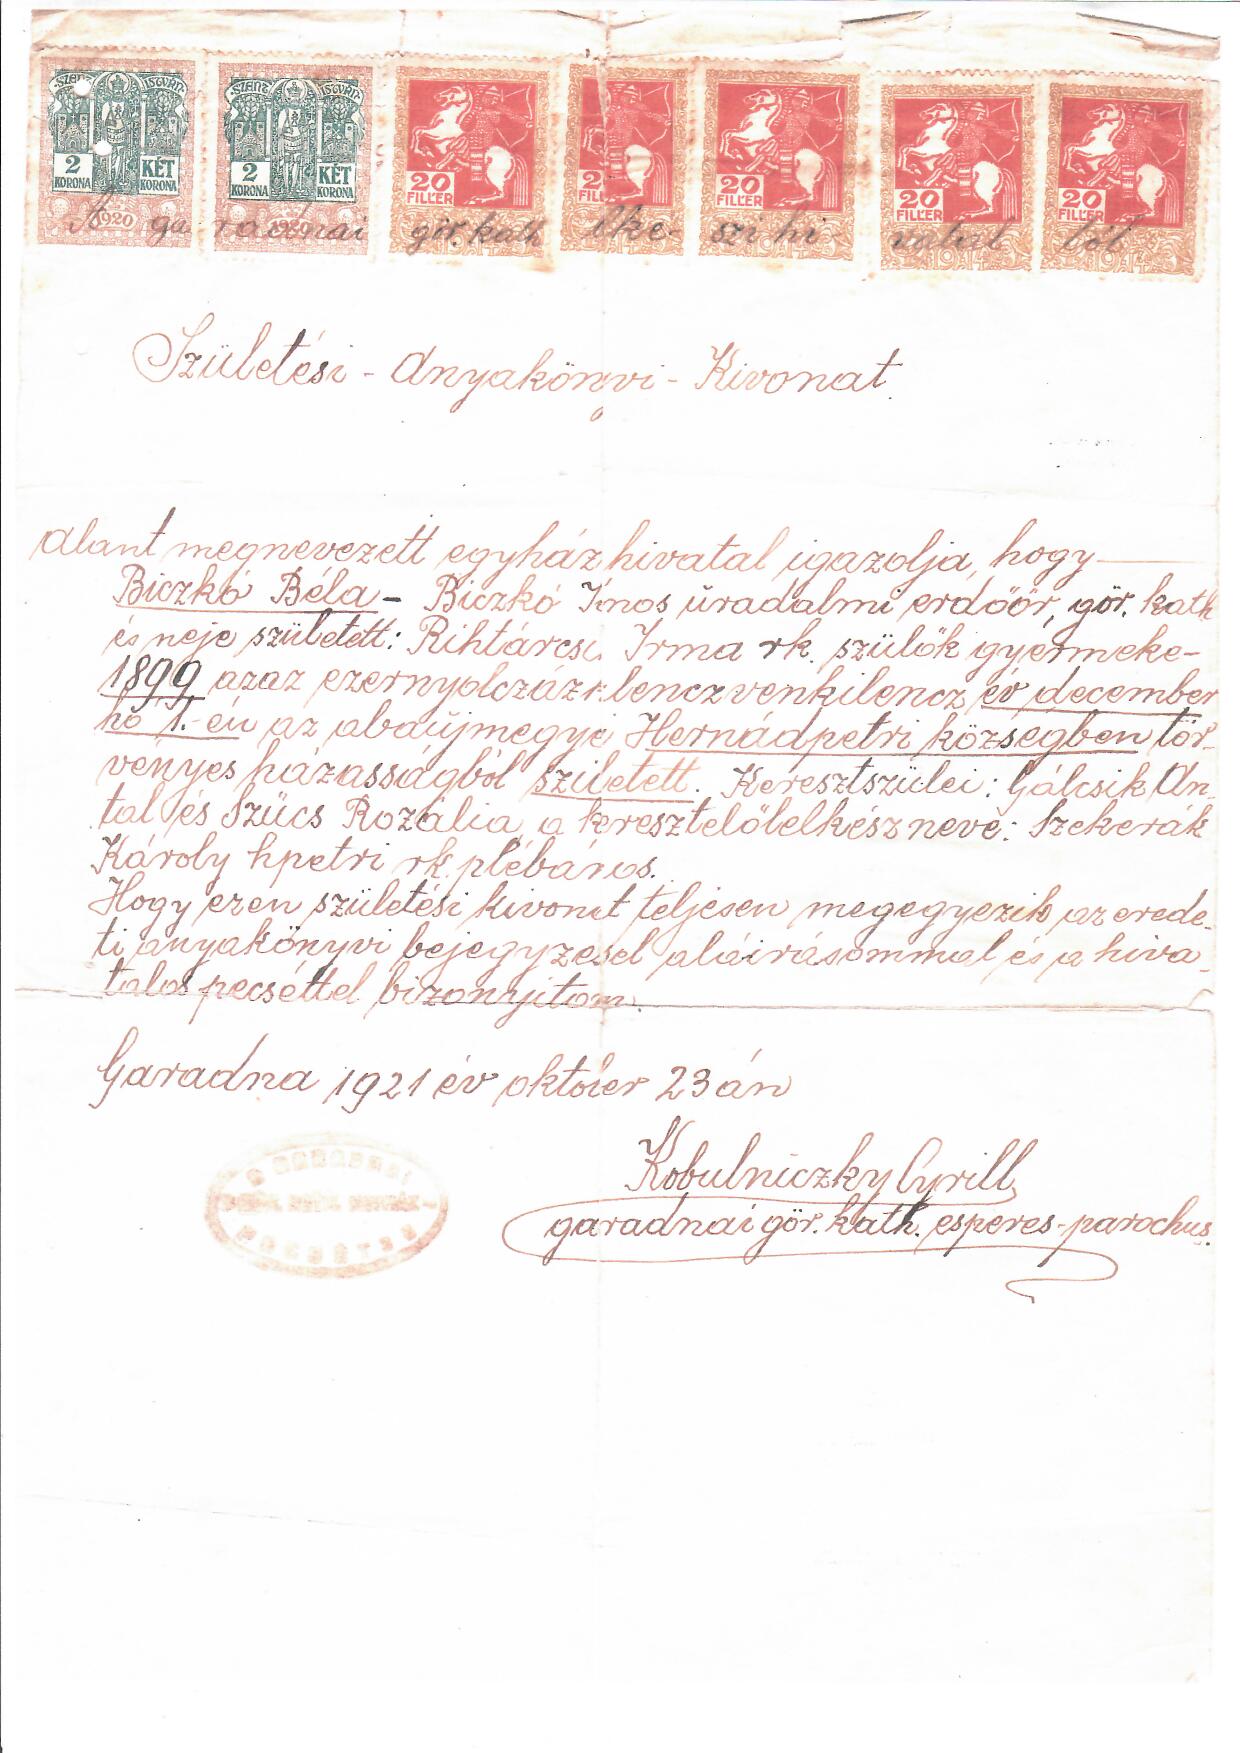 SZENT ISTVÁN SZENT ISTVÁN
2 KORONA KÉT KORONA 2 KORONA KÉT KORONA 20 FILLÉR 20 FILLÉR 20 FILLÉR 20 FILLÉR
1920 1920 1914 1914 1914
A garadnai gör. kath lke- szi hi vatal ból
Születési - Anyakönyvi - Kivonat
Alant megnevezett egyházhivatal igazolja, hogy
Biczkó Béla - Biczkó János uradalmi erdőőr, gör. kath
és neje született: Rihtárcsi Irma rk. szülők gyermeke-
1899 azaz ezernyolczázkilenczvenkilencz év december
hó 1.-én az abaújmegyei Hernádpetri községben tör-
vényes házasságból született. Keresztszülei: Gálcsik An-
tal és Szűcs Rozália, a keresztelőlelkész neve: Szekerák
Károly hpetri rk. plébános.
Hogy ezen születési kivonat teljesen megegyezik az erede-
ti anyakönyvi bejegyzésel aláirásommal és a hiva-
talos pecséttel bizonyitom.
Garadna 1921 év október 23 án
Kobulniczky Cyrill
garadnai gör. kath. esperes-parochus.